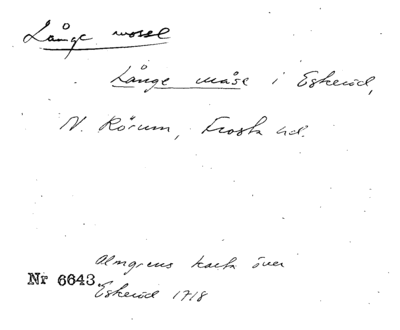 Långe mosse
Långe måse i Eskeröd,
N. Rörum, Frosta hd.
Almgrens karta över
Nr 6643.
Eskeröd 1718